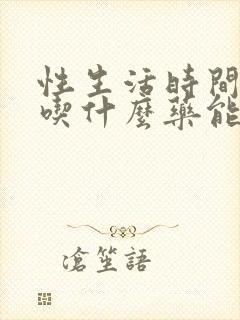 性生活時間
喫什麼藥能
滄笙語